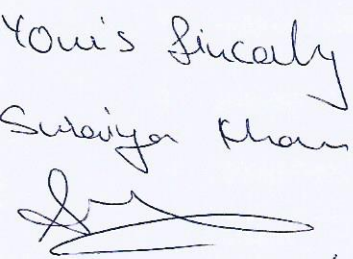 Your's Sincerly
Suraiya Khan